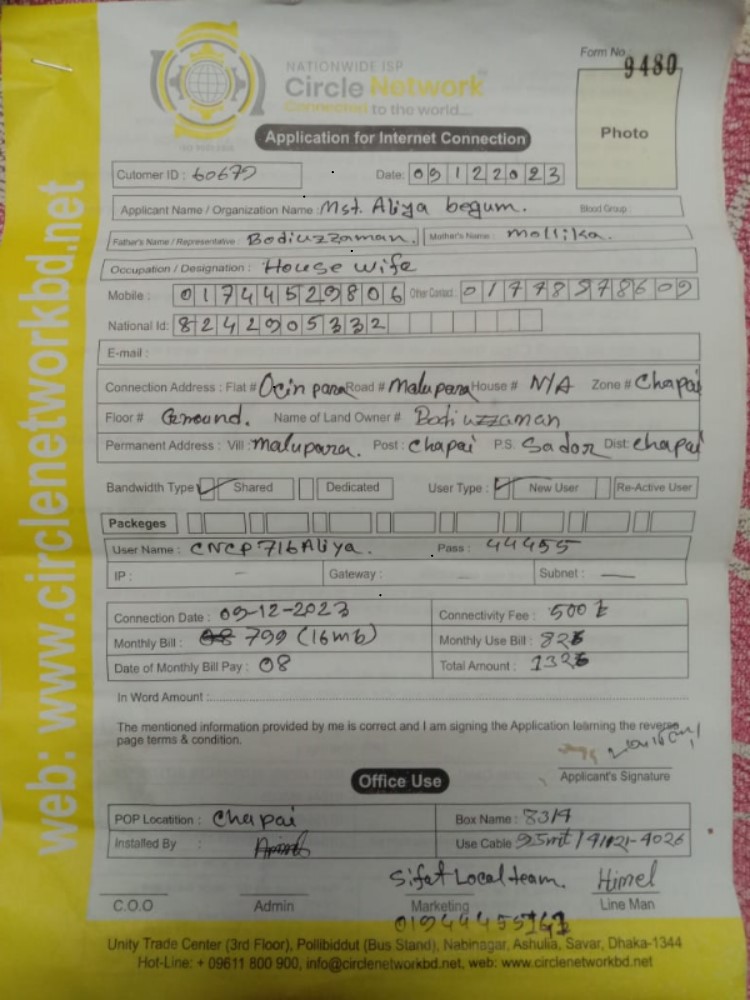 Form No 9480
NATIONWIDE ISP
Circle Network
Connected to the world...
ISO 9001:2015
Application for Internet Connection
Photo
Cutomer ID : 60679 Date: 09122023
Applicant Name / Organization Name : Mst. Aliya begum. Blood Group :
Father's Name / Representative : Bodiuzzaman. Mother's Name : mollika.
Occupation / Designation : House wife
Mobile : 01744529806 Other Contact : 01778978609
National Id: 8242905332
E-mail :
Connection Address : Flat # Ocin para Road # Malupara House # N/A Zone # Chapai
Floor # Ground. Name of Land Owner # Bodiuzzaman
Permanent Address : Vill : malupara. Post : chapai P.S. Sador Dist: chapai
Bandwidth Type Shared Dedicated User Type : New User Re-Active User
Packeges
User Name : CNCP716Aliya. Pass : 44455
IP : Gateway : Subnet :
Connection Date : 09-12-2023 Connectivity Fee : 500
Monthly Bill : 799 (16mb) Monthly Use Bill :
Date of Monthly Bill Pay : 08 Total Amount :
In Word Amount :
The mentioned information provided by me is correct and I am signing the Application learning the reverse
page terms & condition.
Applicant's Signature
Office Use
POP Locatition : Chapai Box Name : 8314
Installed By : Use Cable
Sifat Local team. Himel
C.O.O Admin Marketing Line Man
Unity Trade Center (3rd Floor), Pollibiddut (Bus Stand), Nabinagar, Ashulia, Savar, Dhaka-1344
Hot-Line: + 09611 800 900, info@circlenetworkbd.net, web: www.circlenetworkbd.net
web: www.circlenetworkbd.net